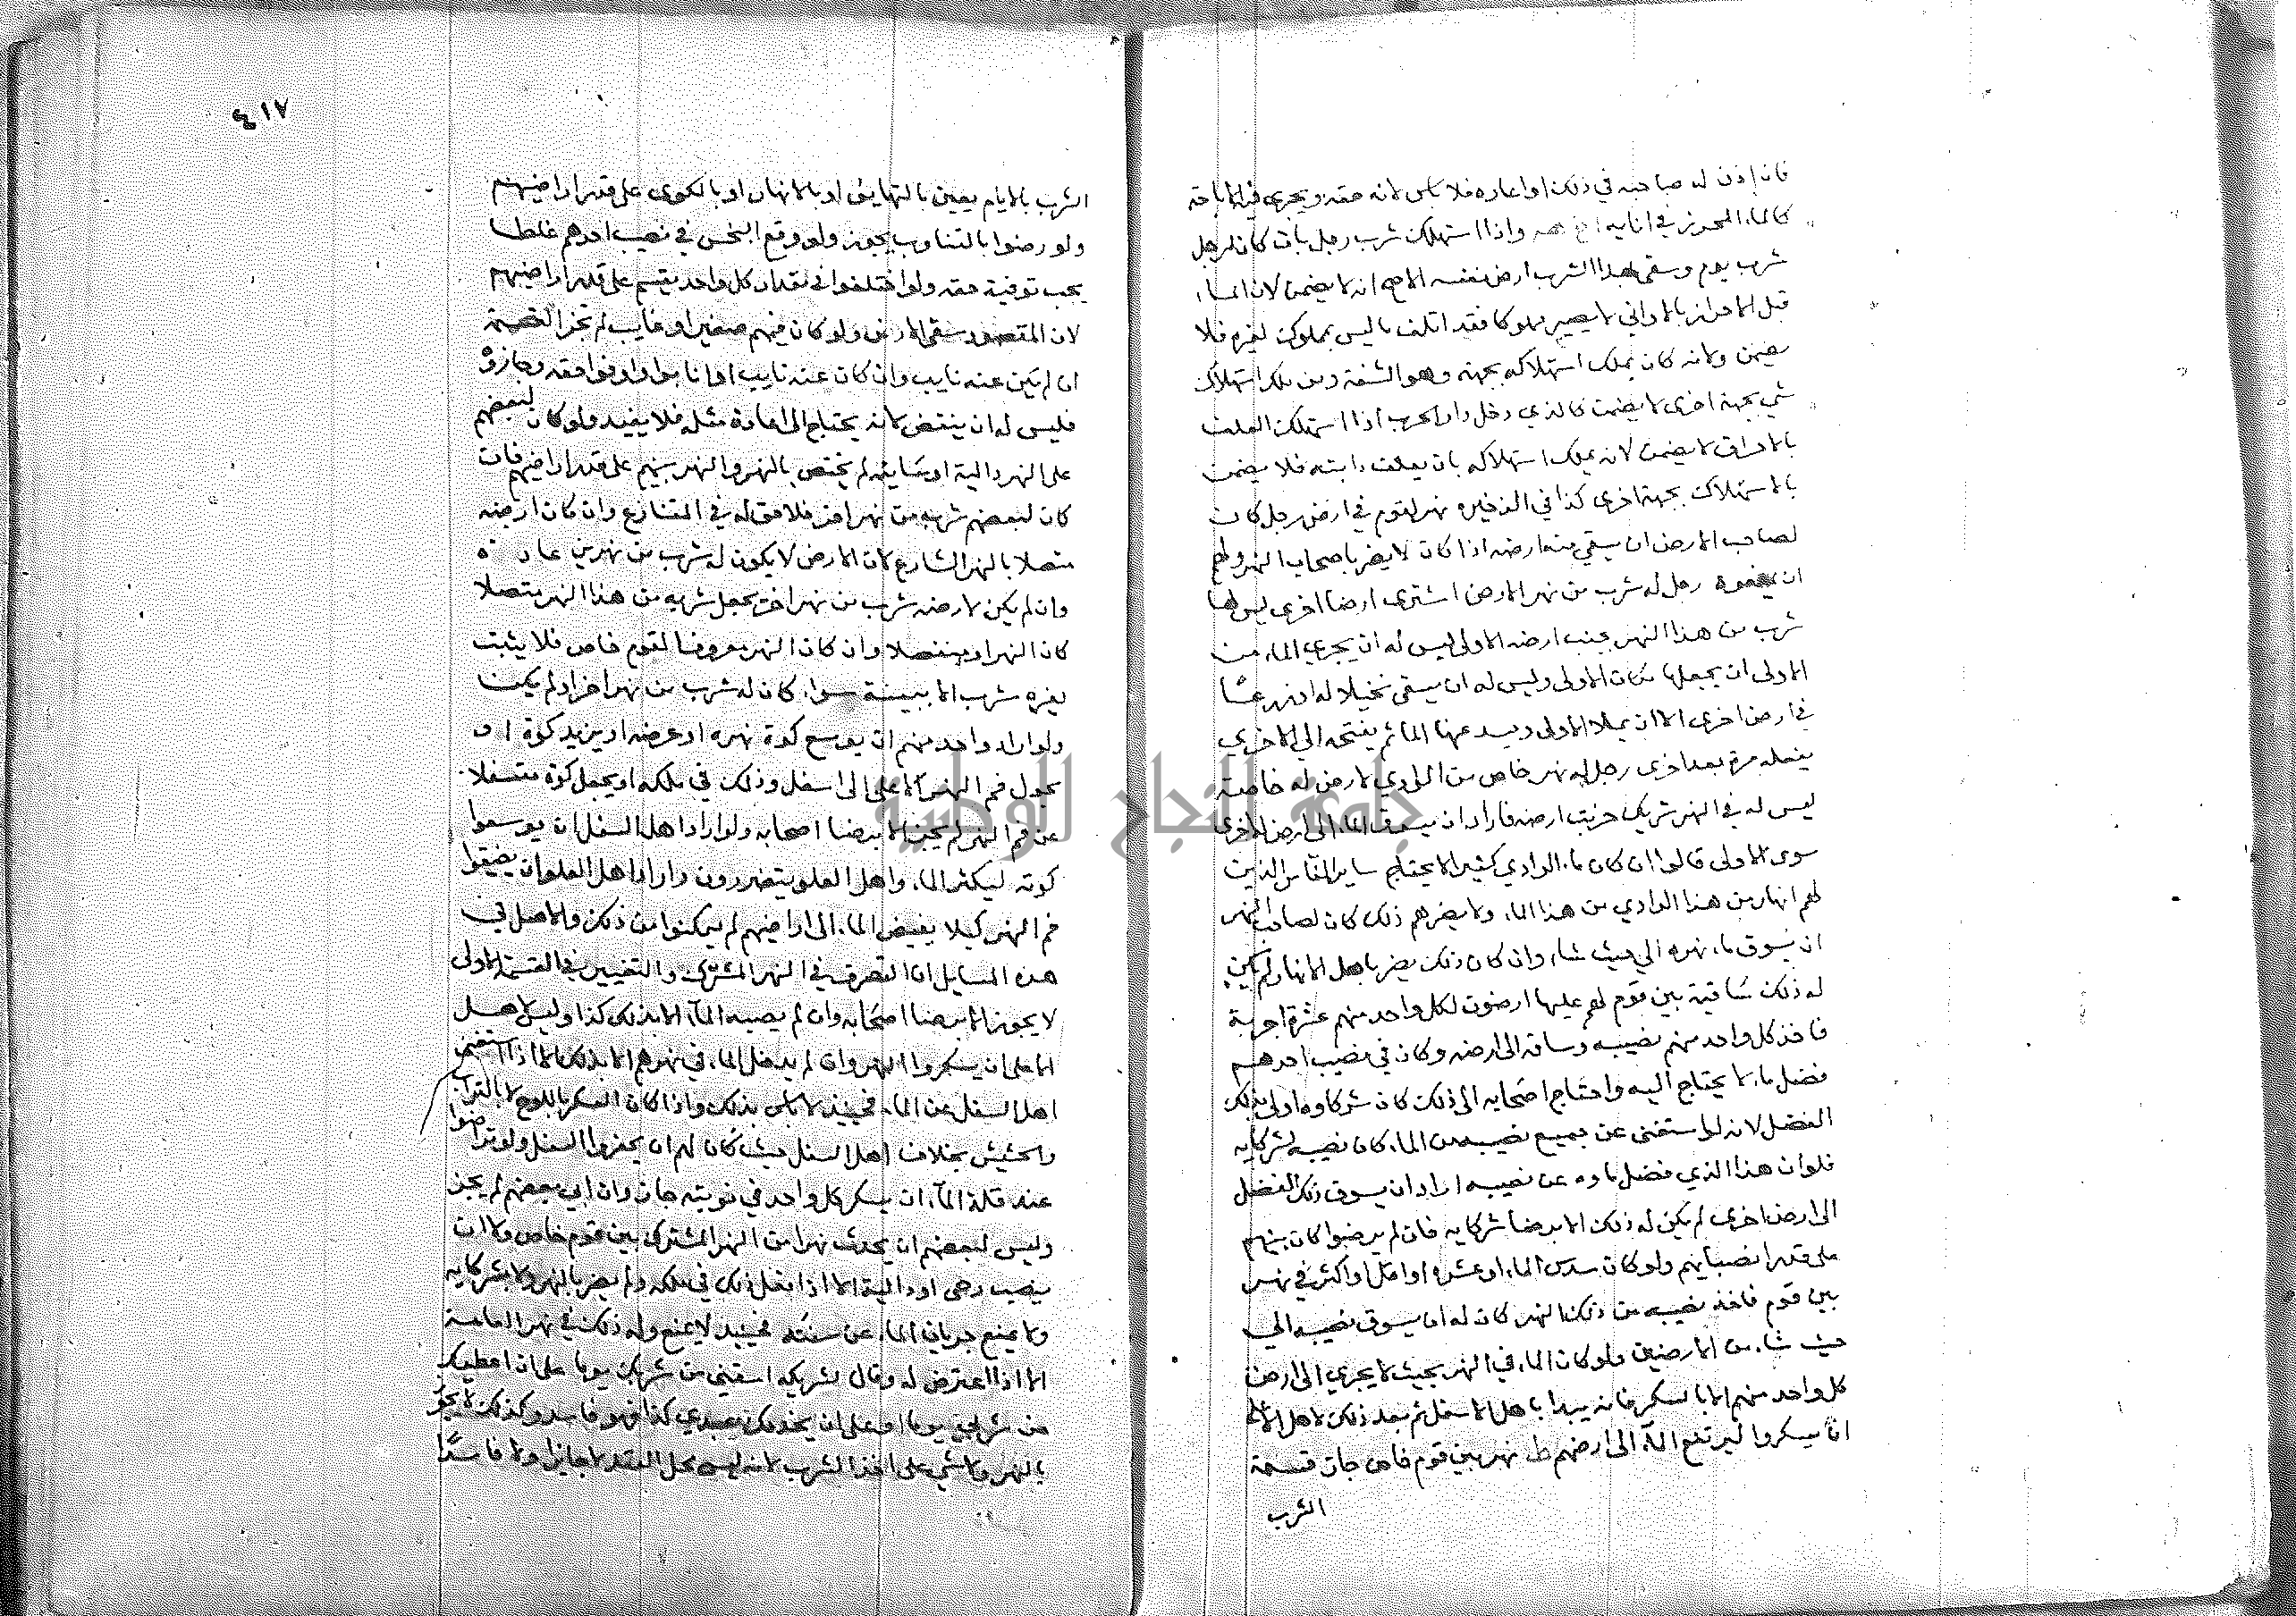 فان اذن له صاحبه في ذلك او اعاره فلا باس لانه حقه ويجري فيه الاباحة
كالماء المحرز في انائه واذا استهلك شرب رجل بان كان لرجل
شرب يوم وسقى بهذا الشرب ارض نفسه الاصح انه لا يضمن لان الماء
قبل الاحراز بالاواني لا يصير مملوكا فقد اتلف ما ليس بمملوك لغيره فلا
يضمن ولانه كان يملك استهلاكه بجهة وهو الشفة ومن ملك استهلاك
شي بجهة اخرى لا يضمن كالذي دخل دار الحرب اذا استهلك العلف
بالاحراق لا يضمن لانه يملك استهلاكه بان يعلف دابته فلا يضمن
بالاستهلاك بجهة اخرى كذا في الذخيره نهر لقوم في ارض رجل كان
لصاحب الارض ان يسقي منه ارضه اذا كان لا يضر باصحاب النهر ولهم
ان يمنعوه رجل له شرب من نهر لارض اشترى ارضا اخرى ليس لها
شرب من هذا النهر بجنب ارضه الاولى ليس له ان يجري الماء من
الاولى ان يجعلها مكان الاولى وليس له ان يسقي نخيلا له او زرعا
في ارض اخرى الا ان يملا الاولى ويسد عنها الما ثم يفتحه الي الاخرى
يفعله مرة بعد اخرى رجل له نهر خاص من الوادي لارض له خاصة
ليس له في النهر شريك خربت ارضه فاراد ان يسوق الماء الى ارض اخرى
سوى الاولى قالوا ان كان ماء الوادي كثيرا لا يحتاج ساير الناس الذين
لهم انهار من هذا الوادي من هذا الماء ولا يضرهم ذلك كان لصاحب النهر
ان يسوق ماء نهره الي حيث شاء وان كان ذلك يضر باهل الانهار لم يكن
له ذلك ساقية بين قوم لهم عليها ارضون لكل واحد منهم عشرة اجربة
فاخذ كل واحد منهم نصيبه وساقه الى ارضه وكان في نصيب احدهم
فضل ماء لا يحتاج اليه واحتاج اصحابه الى ذلك كان شركاوه اولى بذلك
الفضل لانه لو استغنى عن جميع نصيبه من الماء كان نصيبه لشركايه
فلو ان هذا الذي فضل ماوه عن نصيبه اراد ان يسوق ذلك الفضل
الى ارض اخرى لم يكن له ذلك الا برضا شركايه فان لم يرضوا كان بينهم
على قدر انصبايهم ولو كان سدس الماء او عشره او اقل او اكثر في نهر
بين قوم فاخذ نصيبه من ذلك النهر كان له ان يسوق نصيبه الي
حيث شاء من الارضين ولو كان الماء في النهر بحيث لا يجري الى ارض
كل واحد منهم الا بالسكر فانه يبدا باهل الاسفل ثم بعد ذلك لاهل الاعلى
ان يسكروا ليرتفع الماء الى ارضهم ط نهر بين قوم خاص جاز قسمة
الشرب
٤١٧
الشرب بالايام يعني بالتهايئ او بالانهار او بالكوى على قدر اراضيهم
ولو رضوا بالتناوب يجوز ولو وقع البخس في نصيب احدهم غلطا
يجب توفية حقه ولو اختلفوا في مقدار كل واحد يقسم على قدر اراضيهم
لان المقصود سقي الارض ولو كان فيهم صغير او غايب لم تجز القسمة
ان لم يكن عنه نايب وان كان عنه نايب او اوفوا حقه وجازوه
فليس له ان ينتقض لانه يحتاج الى اعادة مثله فلا يفيد ولو كان لبعضهم
على النهر دالية او سانية لم يختص بالنهر والنهر بينهم على قدر اراضيهم فان
كان لبعضهم شربه من نهر اخر فلا حق له في المتنازع وان كان ارضه
متصلا بالنهر الشارع لان الارض لا يكون له شرب من نهرين عادة
وان لم يكن لارضه شرب من نهر اخر يجعل شربه من هذا النهر متصلا
كان النهر او منفصلا وان كان النهر معروفا لقوم خاص فلا يثبت
لغيره شرب الا ببينة سواء كان له شرب من نهر اخر او لم يكن
ولو اراد واحد منهم ان يوسع كوة نهره او عرضه او يزيد كوة او
يحول فم النهر من اعلى الى اسفل وذلك في ملكه او يجعل كوة متسفلا
عن فم النهر لم يجز الا برضا اصحابه ولو اراد اهل السفل ان يوسعوا
كوته ليكثر الماء واهل العلو يتضررون واراد اهل العلو ان يضيقوا
فم النهر كيلا يفيض الماء الى اراضيهم لم يتمكنوا من ذلك والاصل في
هذه المسايل ان التصرف في النهر المشترك والتغيير في القسمة الاولى
لا يجوز الا برضا اصحابه وان لم يصبه الماء الا بذلك كذا وليس لاهل
الاعلى ان يسكروا النهر وان لم يدخل الماء في نهرهم الا بذلك الا اذا استغنى
اهل السفل عن الماء فحينيذ لا باس بذلك واذا كان السكر باللوح لا بالتراب
والحشيش بخلاف اهل السفل حيث كان لهم ان يحفروا السفل ولو تراضوا
عند قلة الماء ان يسكر كل واحد في نوبته جاز وان ابى بعضهم لم يجز
وليس لبعضهم ان يحدث نهرا من النهر المشترك بين قوم خاص ولا ان
ينصب رحى او دالية الا اذا فعل ذلك في ملكه ولم يضر بالنهر ولا بشركايه
ولا يمنع جريان الماء عن سننه فحينيذ لا يمنع وله ذلك في نهر العامة
الا اذا اعترض له وقال لشريكه اسقني من شربك يوما على ان اعطيك
من شربي يوما او على ان يخدمك عبدي كذا فهو فاسد وكذلك لا يجوز
النهر ولا شي على اخذ الشرب لانه ليس محل العقد لا جايزا ولا فاسدا
جامعة النجاح الوطنية